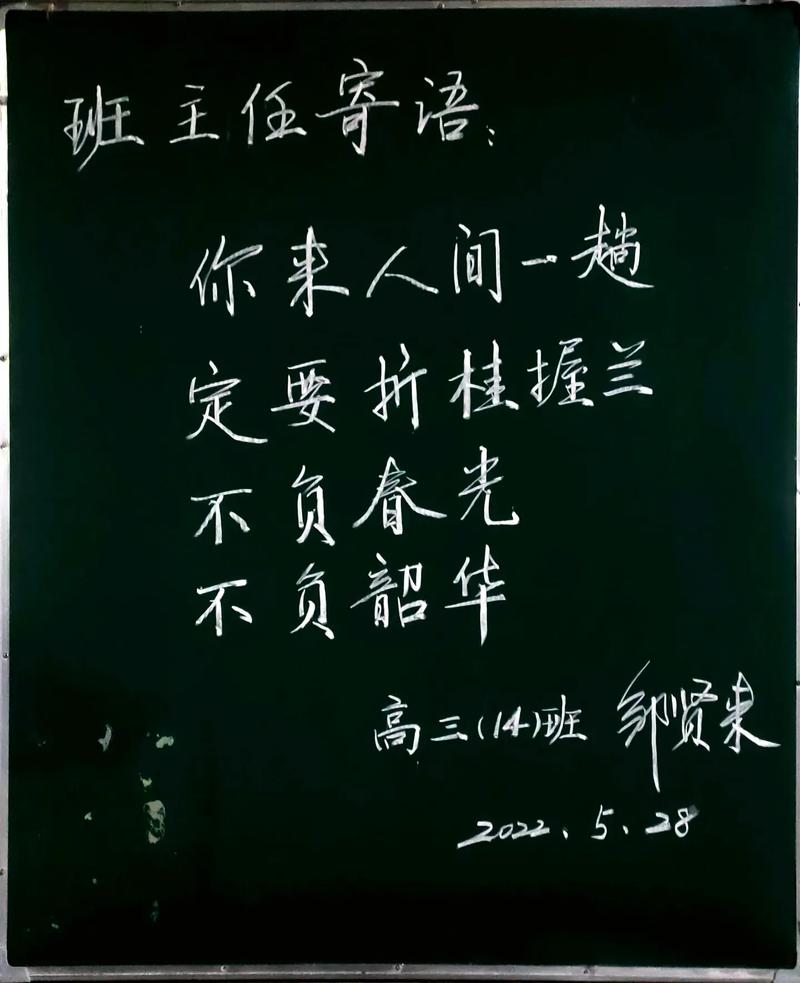 班主任寄语:
你来人间一趟
定要折桂握兰
不负春光
不负韶华
高三(14)班 邹贤来
2022.5.28